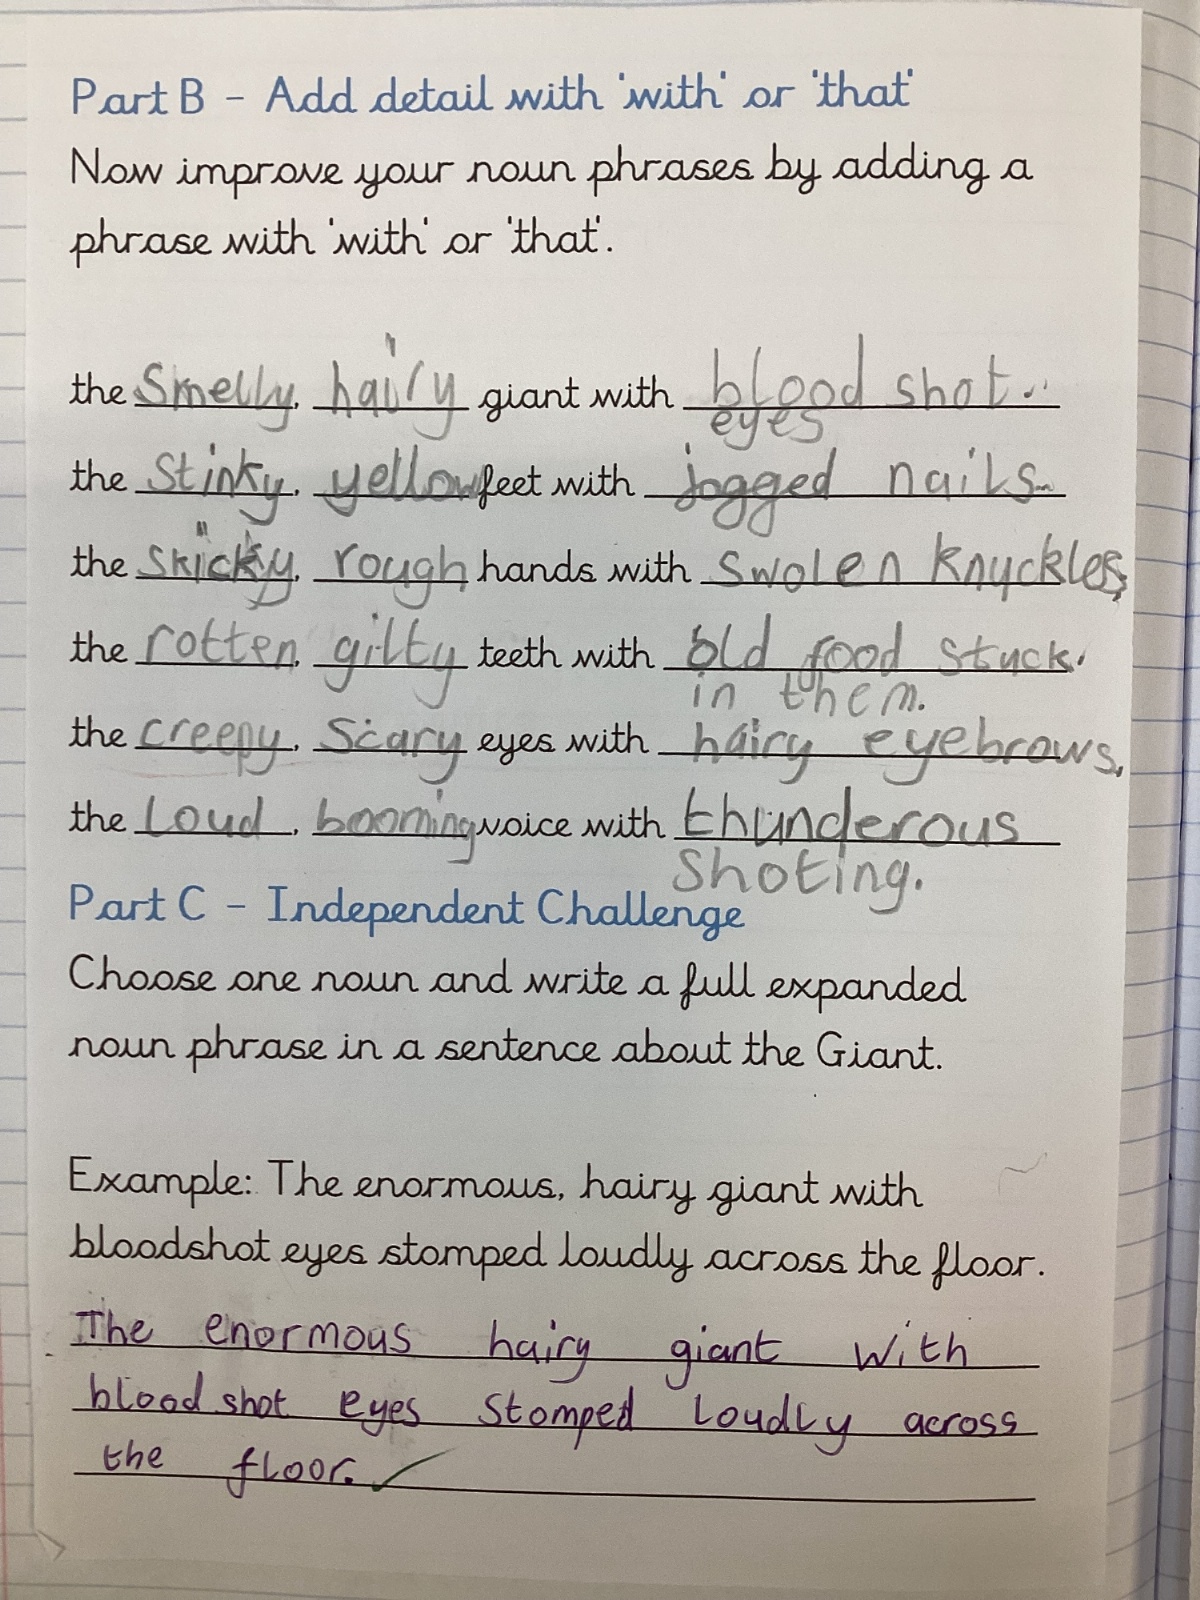 Part B – Add detail with 'with' or 'that'
Now improve your noun phrases by adding a
phrase with 'with' or 'that'.
the Smelly, hairy giant with blood shot.
eyes
the Stinky, yellow feet with jagged nails.
the skicky, rough hands with swolen knuckles,
the rotten, gilty teeth with old food stuck.
in them.
the creepy, Scary eyes with hairy eyebrows.
the Loud, booming voice with thunderous
Shoting.
Part C – Independent Challenge
Choose one noun and write a full expanded
noun phrase in a sentence about the Giant.
Example: The enormous, hairy giant with
bloodshot eyes stomped loudly across the floor.
The enormous hairy giant with
blood shot eyes Stomped Loudly across
the floor.